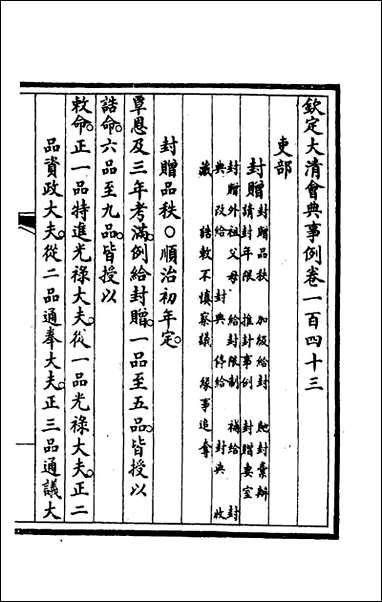 欽定大清會典事例卷一百四十三
吏部
封贈
封贈品秩 加級給封 貤封彙辦
請封年限 推封事例 封贈妻室
封贈外祖父母 給封限制 補給封
典 改給封典 停給封典 收
藏誥敕不慎察議 緣事追奪
封贈品秩○順治初年定。
覃恩及三年考滿。例給封贈。一品至五品。皆授以
誥命。六品至九品。皆授以
敕命。正一品特進光祿大夫。從一品光祿大夫。正二
品資政大夫。從二品通奉大夫。正三品通議大